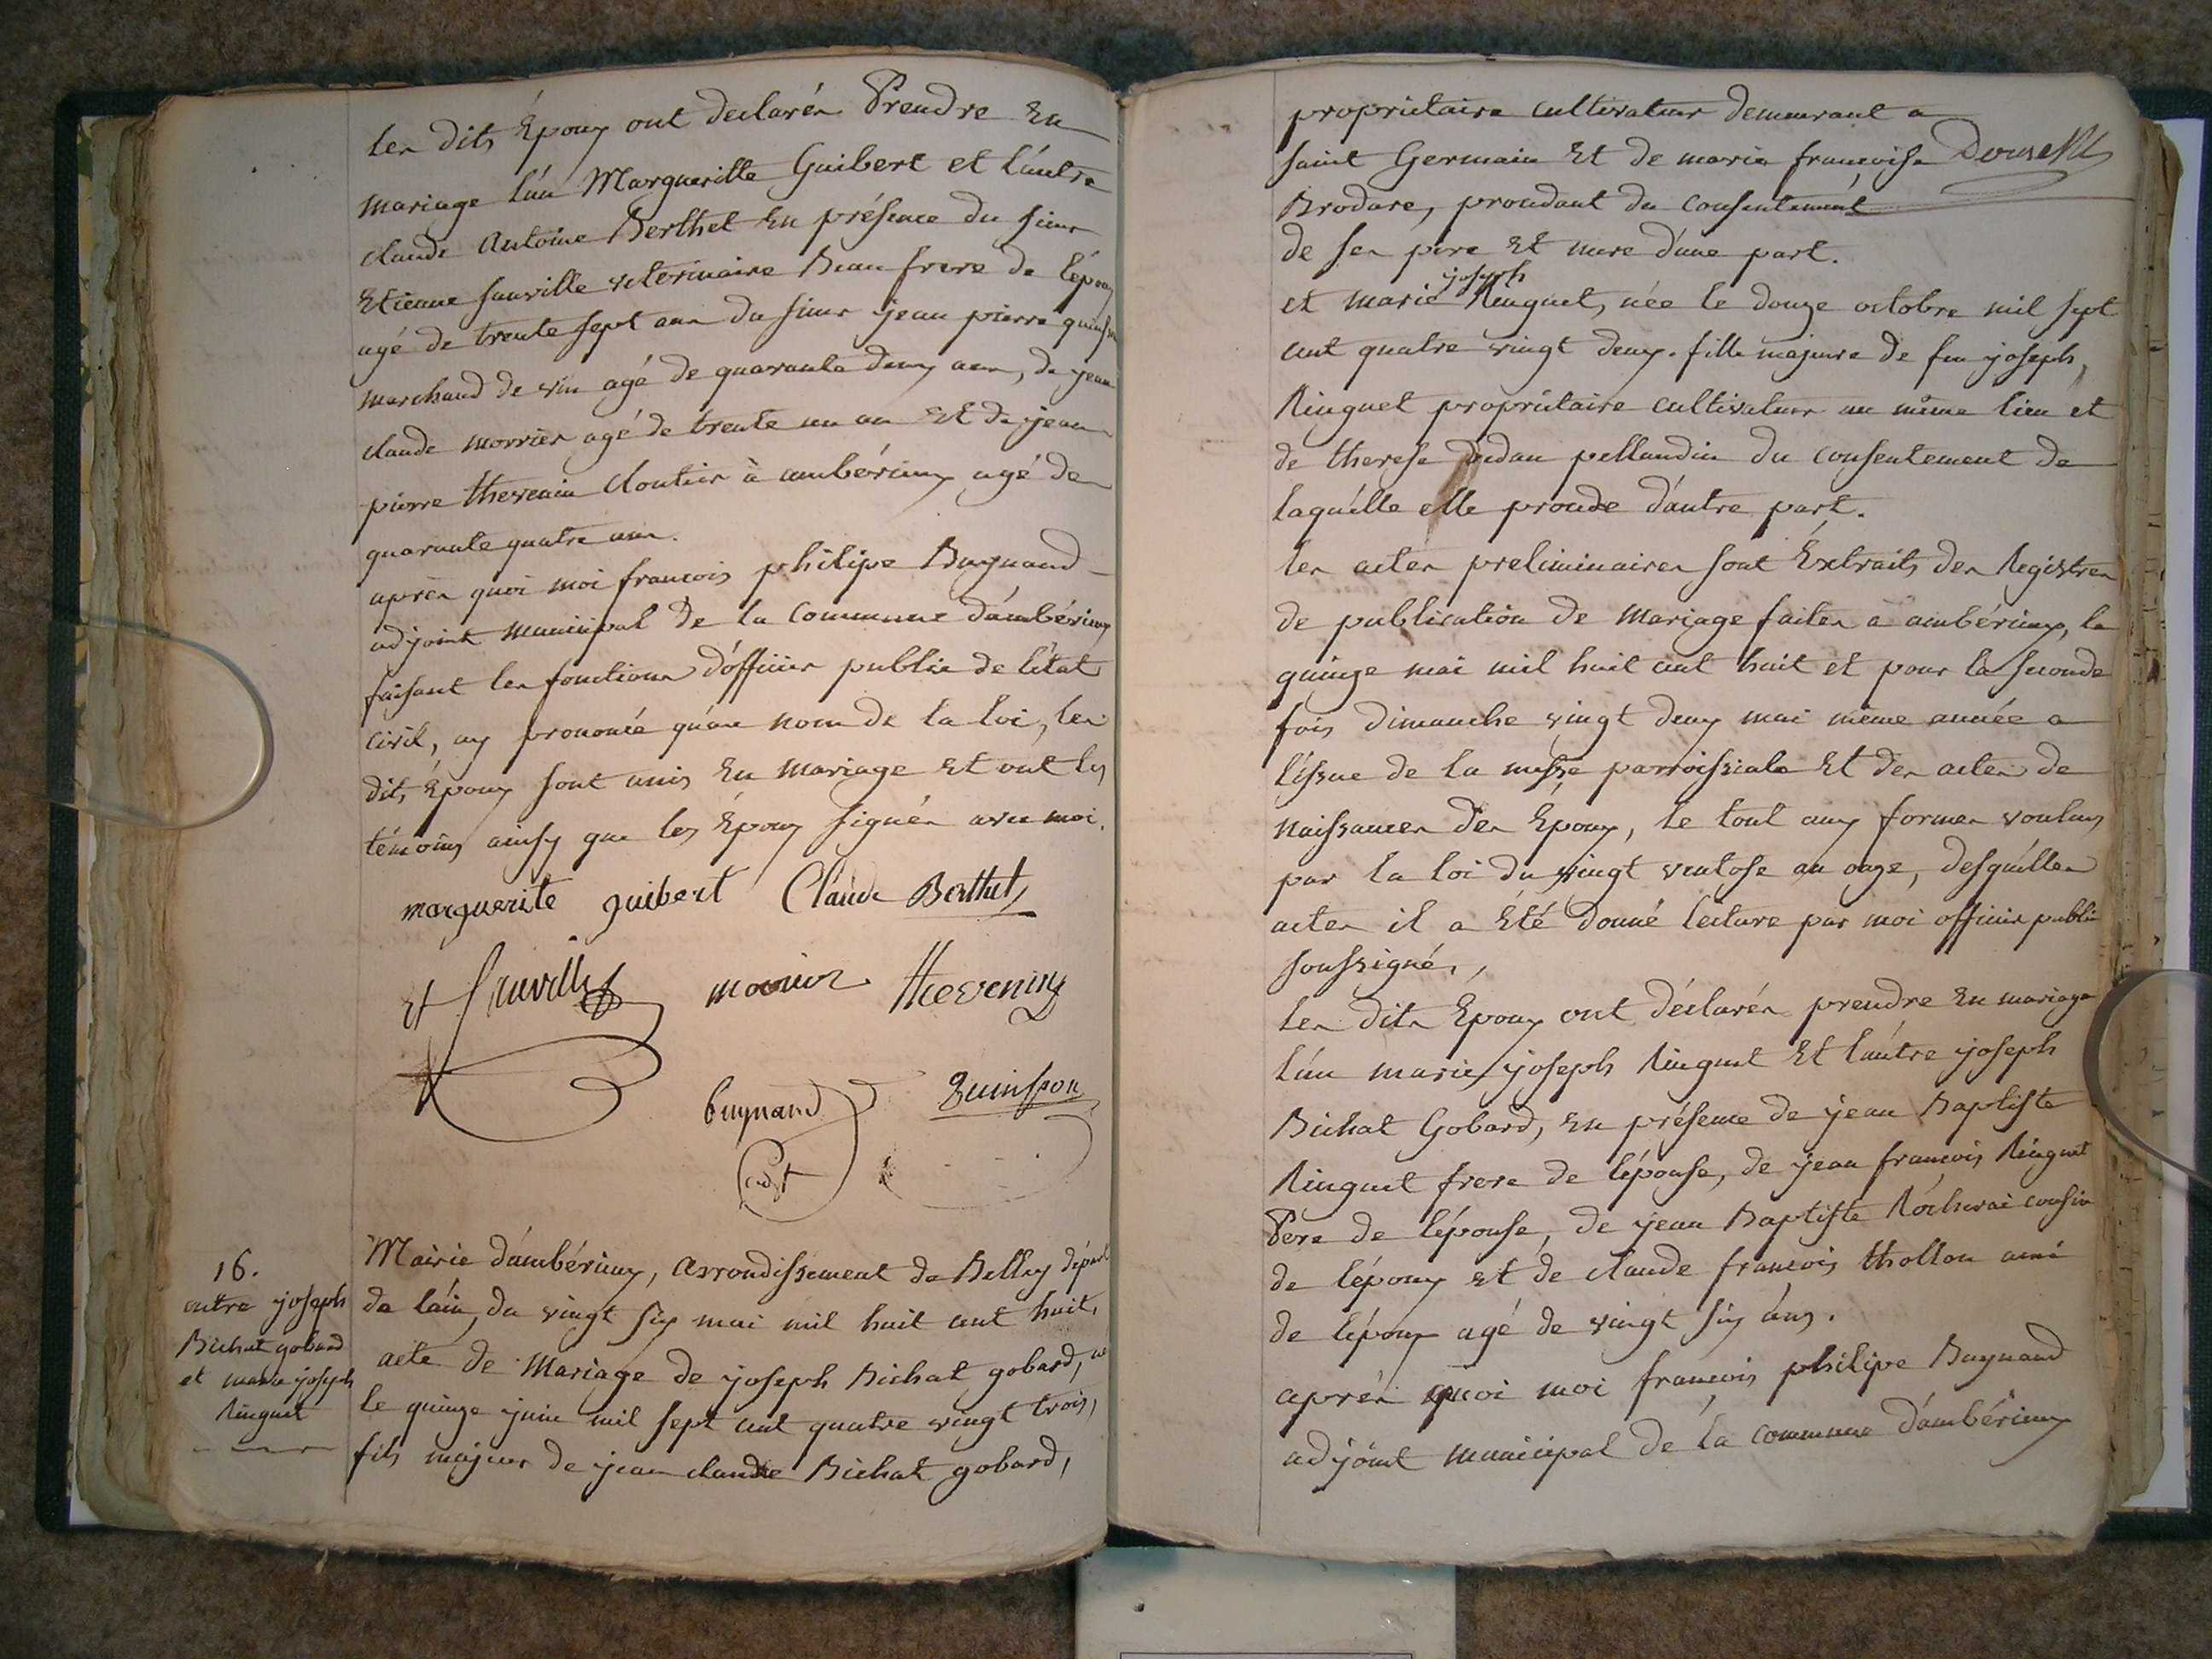 les dits Époux ont declarés Prendre En
mariage l'un Margueritte Guibert et l'autre
claude Antoine Berthet En présence du sieur
Etienne sauville veterinaire Beau frere de l'époux
agé de trente sept ans du sieur jean pierre quinson
marchand de vin agé de quarante deux ans, de jean
claude morrier agé de trente un an Et de jean
pierre thevenin cloutier à ambérieux agé de
quarante quatre ans.
après quoi moi francois philipe Bugnand
adjoint municipal de la commune d'ambérieux
faisant les fonctions d'officier public de l'état
civil, ay prononcé qu'au nom de la loi, les
dits Époux sont unis En mariage Et ont les
témoins ainsy que les Époux signés avec moi.
marguerite guibert Claude Berthet
Et sauville morrier thevenin
bugnand quinsson
adjt
16.
entre joseph
Bichat gobard
et marie joseph
Ringuet
Mairie d'ambérieux, arrondissement de Belley départ
de l'ain, du vingt six mai mil huit cent huit,
acte de Mariage de joseph Bichat gobard, né
le quinze juin mil sept cent quatre vingt trois,
fils majeur de jean claude Bichat gobard,
propriétaire cultivateur demeurant a
saint Germain Et de marie françoise
Brodare, procédant du consentement
de ses père Et mere d'une part.
joseph
et marie Ringuet, née le douze octobre mil sept
cent quatre vingt deux. fille majeure de feu joseph,
Ringuet propriétaire cultivateur au même lieu et
de therese pellaudin du consentement de
laquélle elle procède d'autre part.
les actes preliminaires sont Extraits des Registres
de publication de Mariage faites a ambérieux, le
quinze mai mil huit cent huit et pour la seconde
fois dimanche vingt deux mai même année a
l'issue de la messe parroissiale Et des actes de
naissances des Époux, le tout aux formes voulues
par la loi du vingt ventose an onze, desquélles
actes il a Été donné lecture par moi officier public
soussigné,,
les dits Époux ont déclarés prendre En mariage
l'un marie joseph Ringuet Et l'autre joseph
Bichat Gobard, En présence de jean Baptiste
Ringuet frere de l'épouse, de jean françois Ringuet
Père de l'épouse, de jean Baptiste cousin
de l'époux et de claude françois thollon ami
de l'époux agé de vingt six ans.
après quoi moi françois philipe Bugnand
adjoint municipal de la commune d'ambérieux